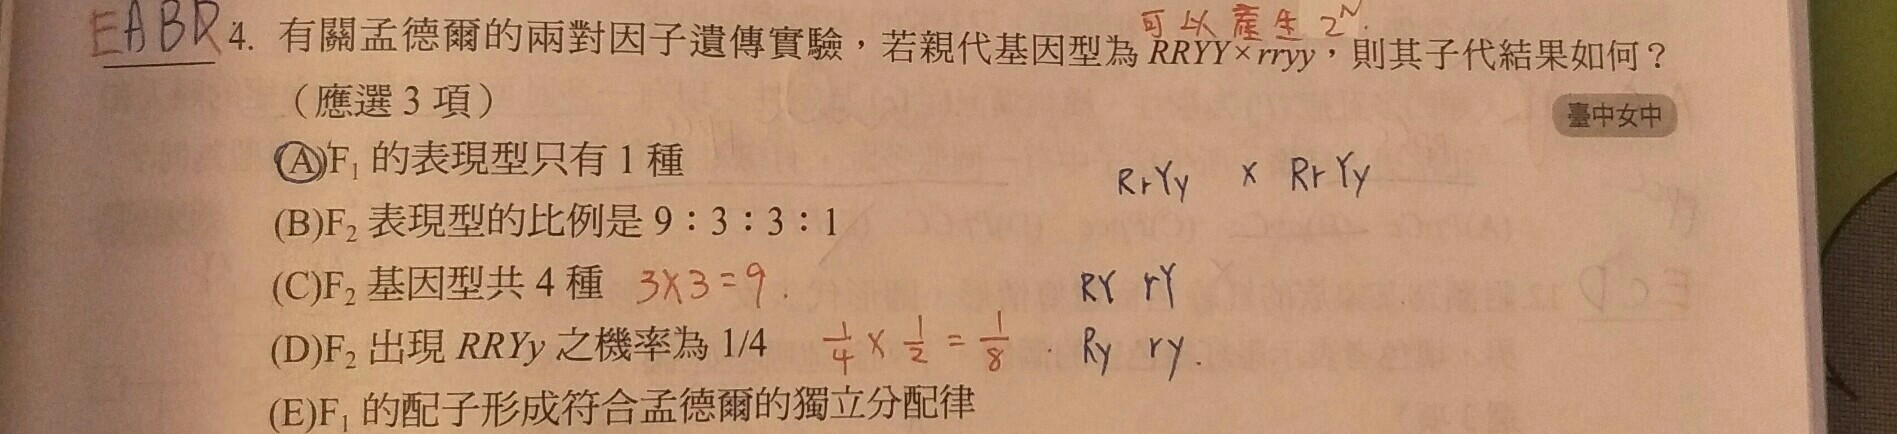 可以產生 2^N.
EABD 4. 有關孟德爾的兩對因子遺傳實驗，若親代基因型為 RRYY×rryy，則其子代結果如何？
（應選 3 項） 臺中女中
(A)F₁ 的表現型只有 1 種
RrYy × RrYy
(B)F₂ 表現型的比例是 9：3：3：1
(C)F₂ 基因型共 4 種 3×3=9. RY rY
(D)F₂ 出現 RRYy 之機率為 1/4 1/4 × 1/2 = 1/8. Ry ry.
(E)F₁ 的配子形成符合孟德爾的獨立分配律